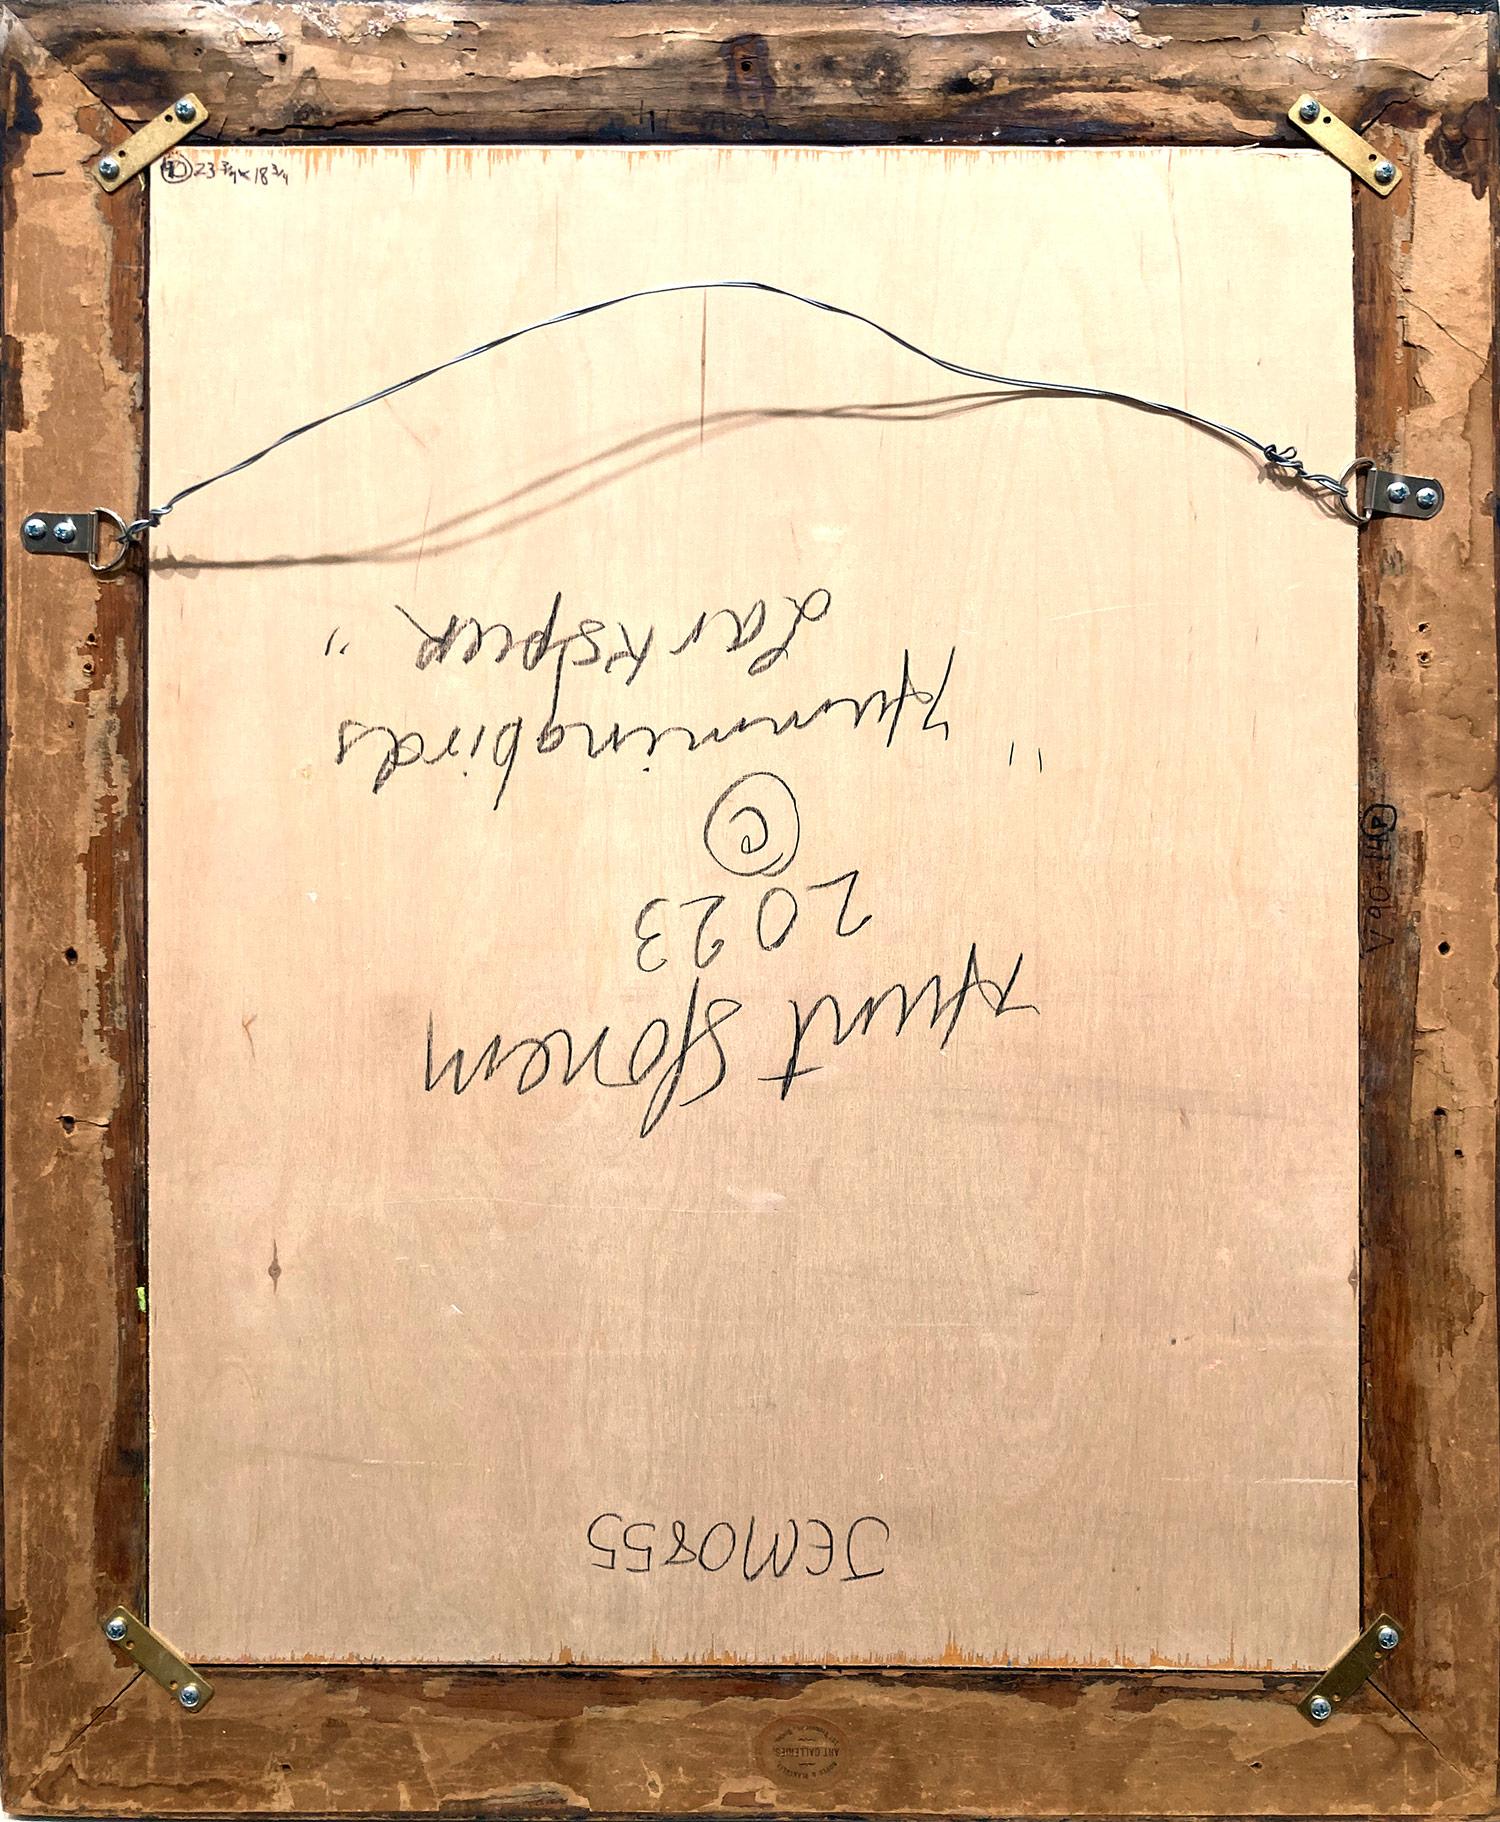 23 3/4 x 18 3/4
Hunt Slonem
2023
©
"Hummingbirds
Larkspur"
JEM0855
V 90-14 P
ART GALLERIES